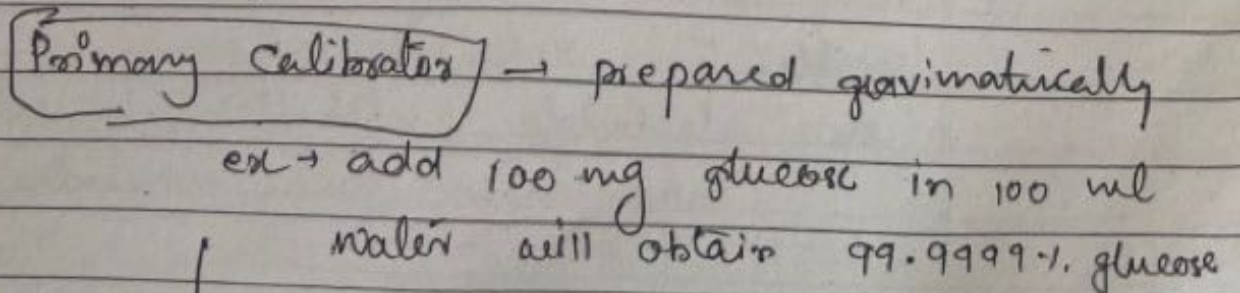 Primary Calibrator → prepared gravimatrically
ex → add 100 mg glucose in 100 ml
water will obtain 99.9999 % glucose